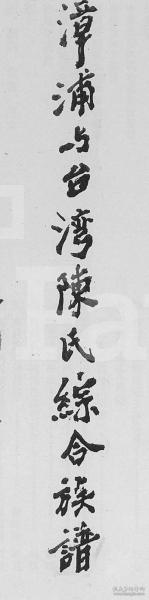 漳浦与台湾陳氏綜合族譜